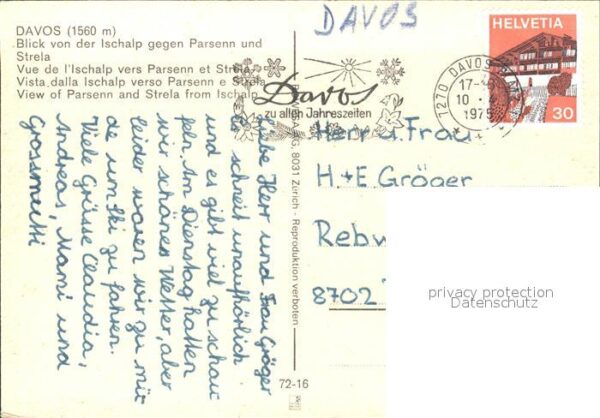 DAVOS (1560 m)
Blick von der Ischalp gegen Parsenn und
Strela
Vue de l'Ischalp vers Parsenn et Strela
Vista dalla Ischalp verso Parsenn e Strela
View of Parsenn and Strela from Ischalp
DAVOS
HELVETIA
30
7270 DAVOS
17-
10.
1975
Davos
zu allen Jahreszeiten
Liebe Herr und Frau Gröger
Es schneit unaufhörlich
und es gibt viel zu schau
feln. Am Dienstag hatten
wir schönes Wetter, aber
leider waren wir zu mü
de um Ski zu fahren.
Viele Grüsse Claudia,
Andreas, Mami und
Grossmutti
AG, 8031 Zürich - Reproduktion verboten
72-16
Herr u. Frau
H.+E. Gröger
Rebw
8702
privacy protection
Datenschutz